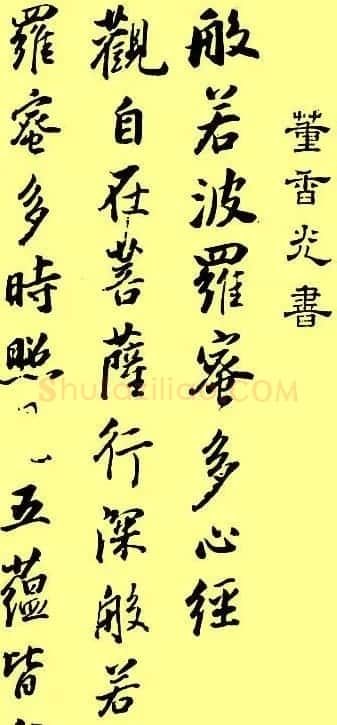 董香光書
般若波羅蜜多心經
觀自在菩薩行深般若
羅蜜多時照
五蘊皆
Shufaziliao.COM